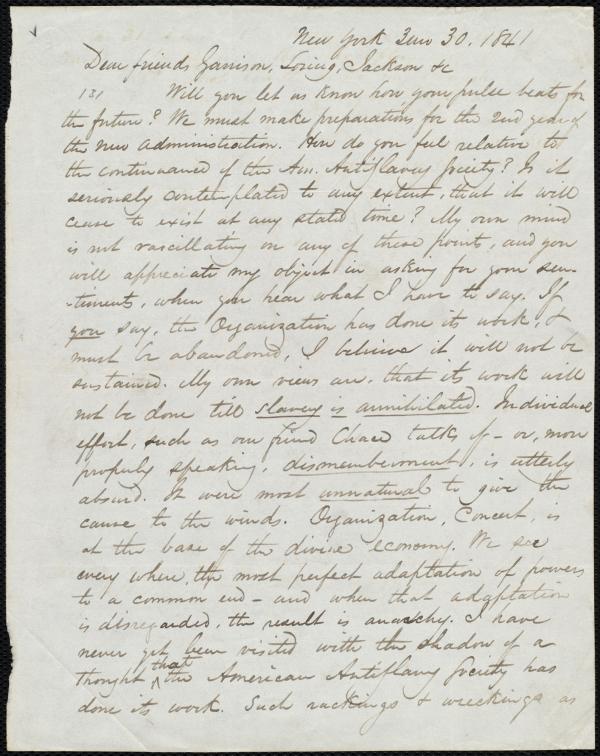 New York Jany 30. 1841
Dear friends Garrison, Loring, Jackson &c
Will you let us know how your pulse beats for
the future? We must make preparations for the 2nd year of
the new administration. How do you feel relative to
the continuance of the Am. Antislavery Society? Is it
seriously contemplated to any extent, that it will
cease to exist at any stated time? My own mind
is not vascillating on any of these points, and you
will appreciate my object in asking for your sen-
-timents, when you hear what I have to say. If
you say, the Organization has done its work, &
must be abandoned, I believe it will not be
sustained. My own views are, that its work will
not be done till slavery is annihilated. Individual
effort, such as our friend Chace talks of - or, more
properly speaking, dismemberment, is utterly
absurd. It were most unnatural to give the
cause to the winds. Organization, Concert, is
at the base of the divine economy. We see
every where, the most perfect adaptation of powers
to a common end - and when that adaptation
is disregarded, the result is anarchy. I have
never yet been visited with the shadow of a
thought that the American Antislavery Society has
done its work. Such rackings & wreckings as